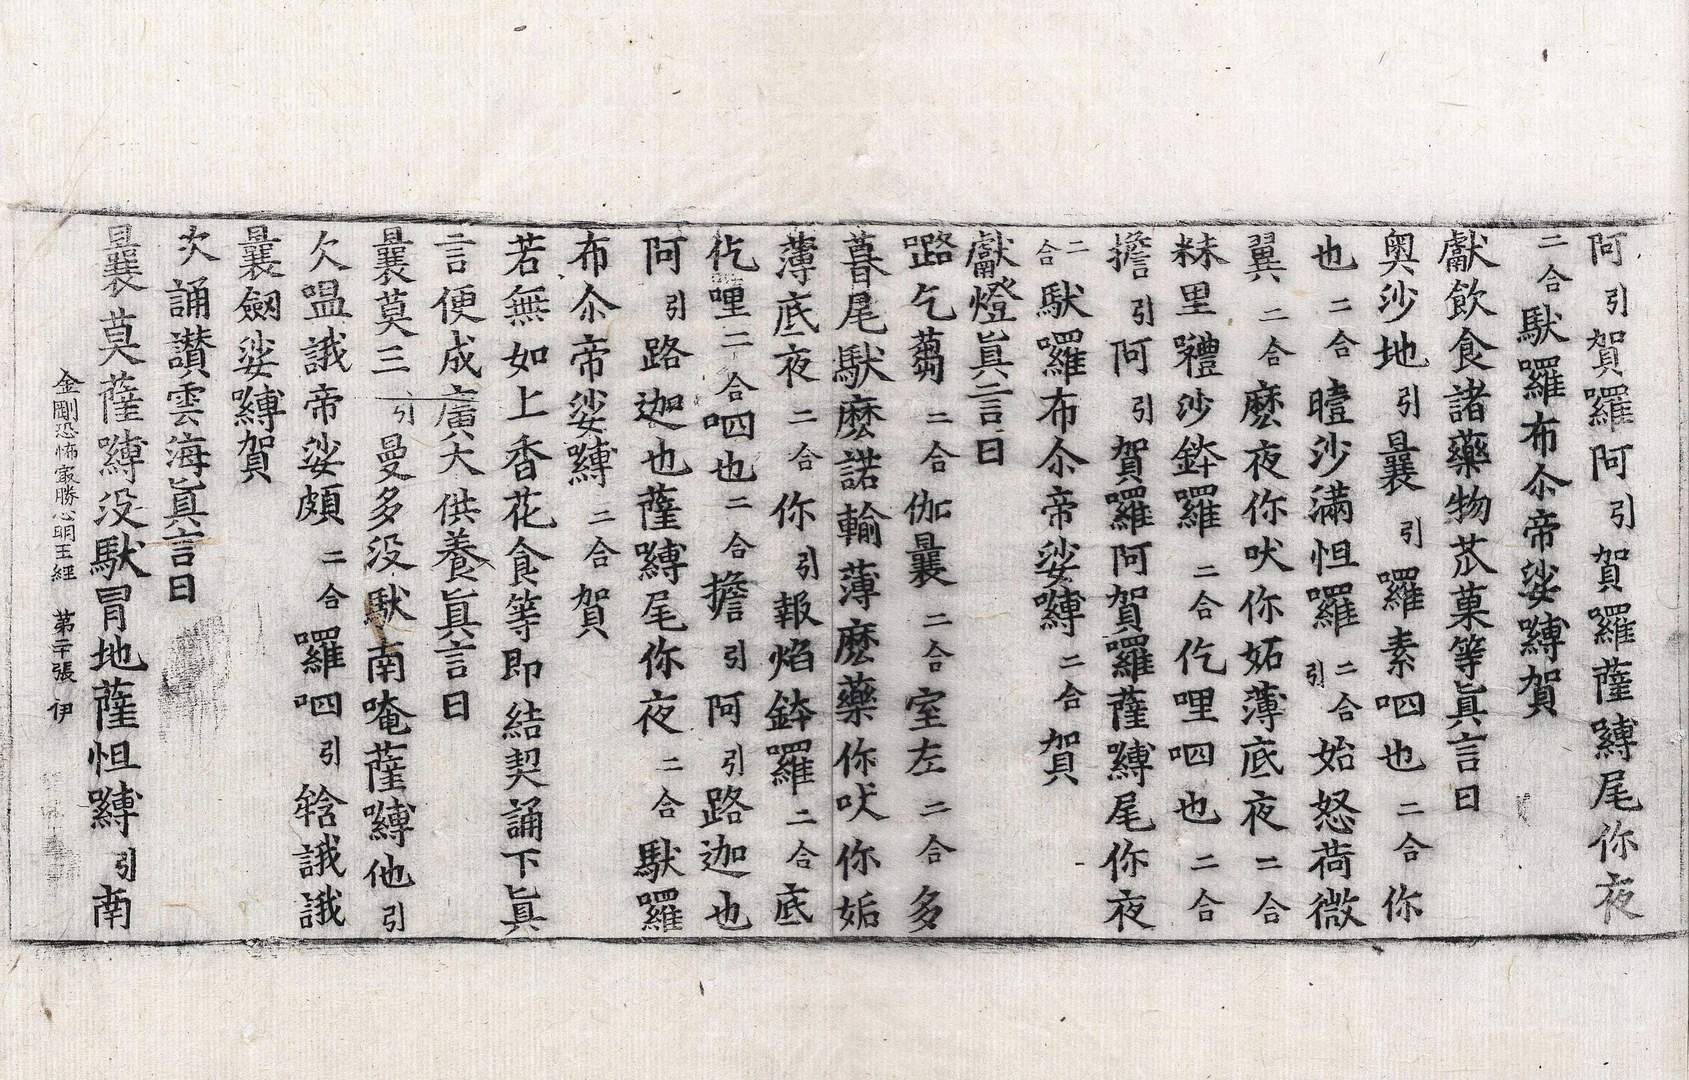 阿引賀囉阿引賀囉薩嚩尾你夜
二合馱囉布尒帝娑嚩賀
獻飲食諸藥物苽菓等眞言曰
奧沙地引曩引囉素呬也二合你
也二合曀沙滿怛囉二合引始怒荷微
翼二合麽夜你吠你妬薄底夜二合
粖里禮沙鉢囉二合仡哩呬也二合
擔引阿引賀囉阿賀囉薩嚩尾你夜
二合馱囉布尒帝娑嚩二合賀
獻燈眞言曰
路乞蒭二合伽曩二合室左二合多
暮尾馱麽諾輸薄麽藥你吠你妬
薄底夜二合你引報焰鉢囉二合底
仡哩二合呬也二合擔引阿引路迦也
阿引路迦也薩嚩尾你夜二合馱囉
布尒帝娑嚩二合賀
若無如上香花食等即結契誦下眞
言便成廣大供養眞言曰
曩莫三引曼多没馱南唵薩嚩他引
欠嗢誐帝娑頗二合囉呬引𤚥誐誐
曩劔娑嚩賀
次誦讃雲海眞言曰
曩莫薩嚩没馱冐地薩怛嚩引南
金剛恐怖冣勝心明王經 第二十張 伊